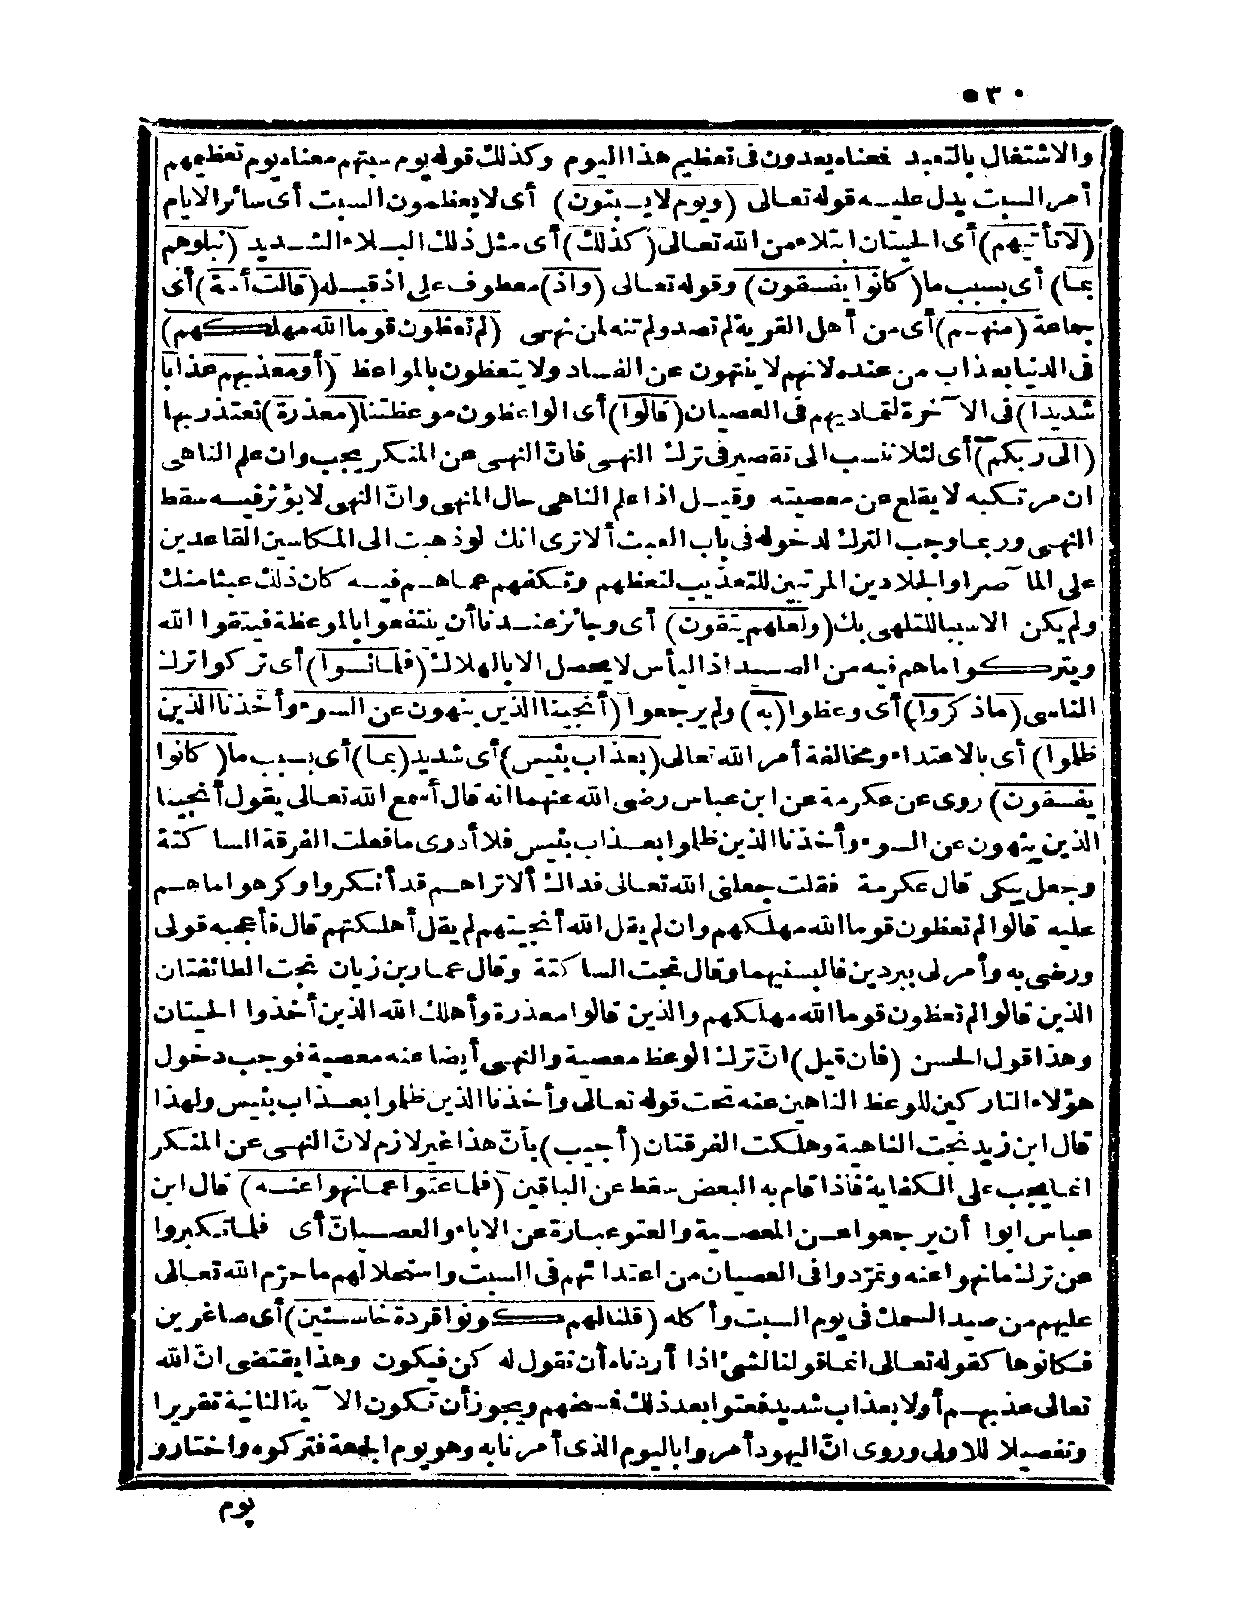 ٥٣٠
والاشتغال بالتعبد فمعناه يعدون فى تعظيم هذا اليوم وكذلك قوله يوم سبتهم معناه يوم تعظيمهم
أمر السبت يدل عليه قوله تعالى (ويوم لا يسبتون) أى لا يعظمون السبت أى سائر الايام
(لا تأتيهم) أى الحيتان ابتلاء من الله تعالى (كذلك) أى مثل ذلك البلاء الشديد (نبلوهم
بما) أى بسبب ما (كانوا يفسقون) وقوله تعالى (واذ) معطوف على اذ قبله (قالت أمة) أى
جماعة (منهم) أى من أهل القرية لم تصد ولم تنه لمن نهى (لم تعظون قوما الله مهلكهم)
فى الدنيا بعذاب من عنده لانهم لا ينتهون عن الفساد ولا يتعظون بالمواعظ (أو معذبهم عذابا
شديدا) فى الآخرة لتماديهم فى العصيان (قالوا) أى الواعظون موعظتنا (معذرة) نعتذر بها
(الى ربكم) أى لئلا ننسب الى تقصير فى ترك النهى فانّ النهى عن المنكر يجب وان علم الناهى
ان مرتكبه لا يقلع عن معصيته وقيل اذا علم الناهى حال المنهى وانّ النهى لا يؤثر فيه سقط
النهى وربما وجب الترك لدخوله فى باب العبث ألا ترى انك لو ذهبت الى المكاسين القاعدين
على المآصر او الجلادين المرتبين للتعذيب لتعظهم وتكفهم عماهم فيه كان ذلك عبثا منك
ولم يكن الا سببا للتلهى بك (ولعلهم يتقون) أى وجائز عندنا أن ينتفعوا بالموعظة فيتقوا الله
ويتركوا ما هم فيه من الصيد اذ اليأس لا يحصل الا بالهلاك (فلما نسوا) أى تركوا ترك
الناسى (ما ذكروا) أى وعظوا (به) ولم يرجعوا (أنجينا الذين ينهون عن السوء وأخذنا الذين
ظلموا) أى بالاعتداء ومخالفة أمر الله تعالى (بعذاب بئيس) أى شديد (بما) أى بسبب ما (كانوا
يفسقون) روى عن عكرمة عن ابن عباس رضى الله عنهما انه قال أسمع الله تعالى يقول أنجينا
الذين ينهون عن السوء وأخذنا الذين ظلموا بعذاب بئيس فلا أدرى ما فعلت الفرقة الساكتة
وجعل يبكى قال عكرمة فقلت جعلنى الله تعالى فداك ألا تراهم قد أنكروا وكرهوا ما هم
عليه قالوا لم تعظون قوما الله مهلكهم وان لم يقل الله أنجيتهم لم يقل أهلكتهم قال فأعجبه قولى
ورضى به وأمر لى ببردين فألبسنيهما وقال نجت الساكتة وقال عمار بن زيان نجت الطائفتان
الذين قالوا لم تعظون قوما الله مهلكهم والذين قالوا معذرة وأهلك الله الذين أخذوا الحيتان
وهذا قول الحسن (فان قيل) انّ ترك الوعظ معصية والنهى أيضا عنه معصية فوجب دخول
هؤلاء التاركين للوعظ الناهين عنه تحت قوله تعالى وأخذنا الذين ظلموا بعذاب بئيس ولهذا
قال ابن زيد نجت الناهية وهلكت الفرقتان (أجيب) بأنّ هذا غير لازم لانّ النهى عن المنكر
انما يجب على الكفاية فاذا قام به البعض سقط عن الباقين (فلما عتوا عما نهوا عنه) قال ابن
عباس ابوا أن يرجعوا عن المعصية والعتو عبارة عن الاباء والعصيان أى فلما تكبروا
عن ترك ما نهوا عنه وتمرّدوا فى العصيان من اعتدائهم فى السبت واستحلالهم ما حرّم الله تعالى
عليهم من صيد السمك فى يوم السبت وأكله (قلنا لهم كونوا قردة خاسئين) أى صاغرين
فكانوها كقوله تعالى انما قولنا لشئ اذا أردناه أن نقول له كن فيكون وهذا يقتضى انّ الله
تعالى عذبهم أولا بعذاب شديد فعتوا بعد ذلك فمسخهم ويجوز أن تكون الآية الثانية تقريرا
وتفصيلا للاولى وروى انّ اليهود أمروا باليوم الذى أمرنا به وهو يوم الجمعة فتركوه واختاروا
يوم